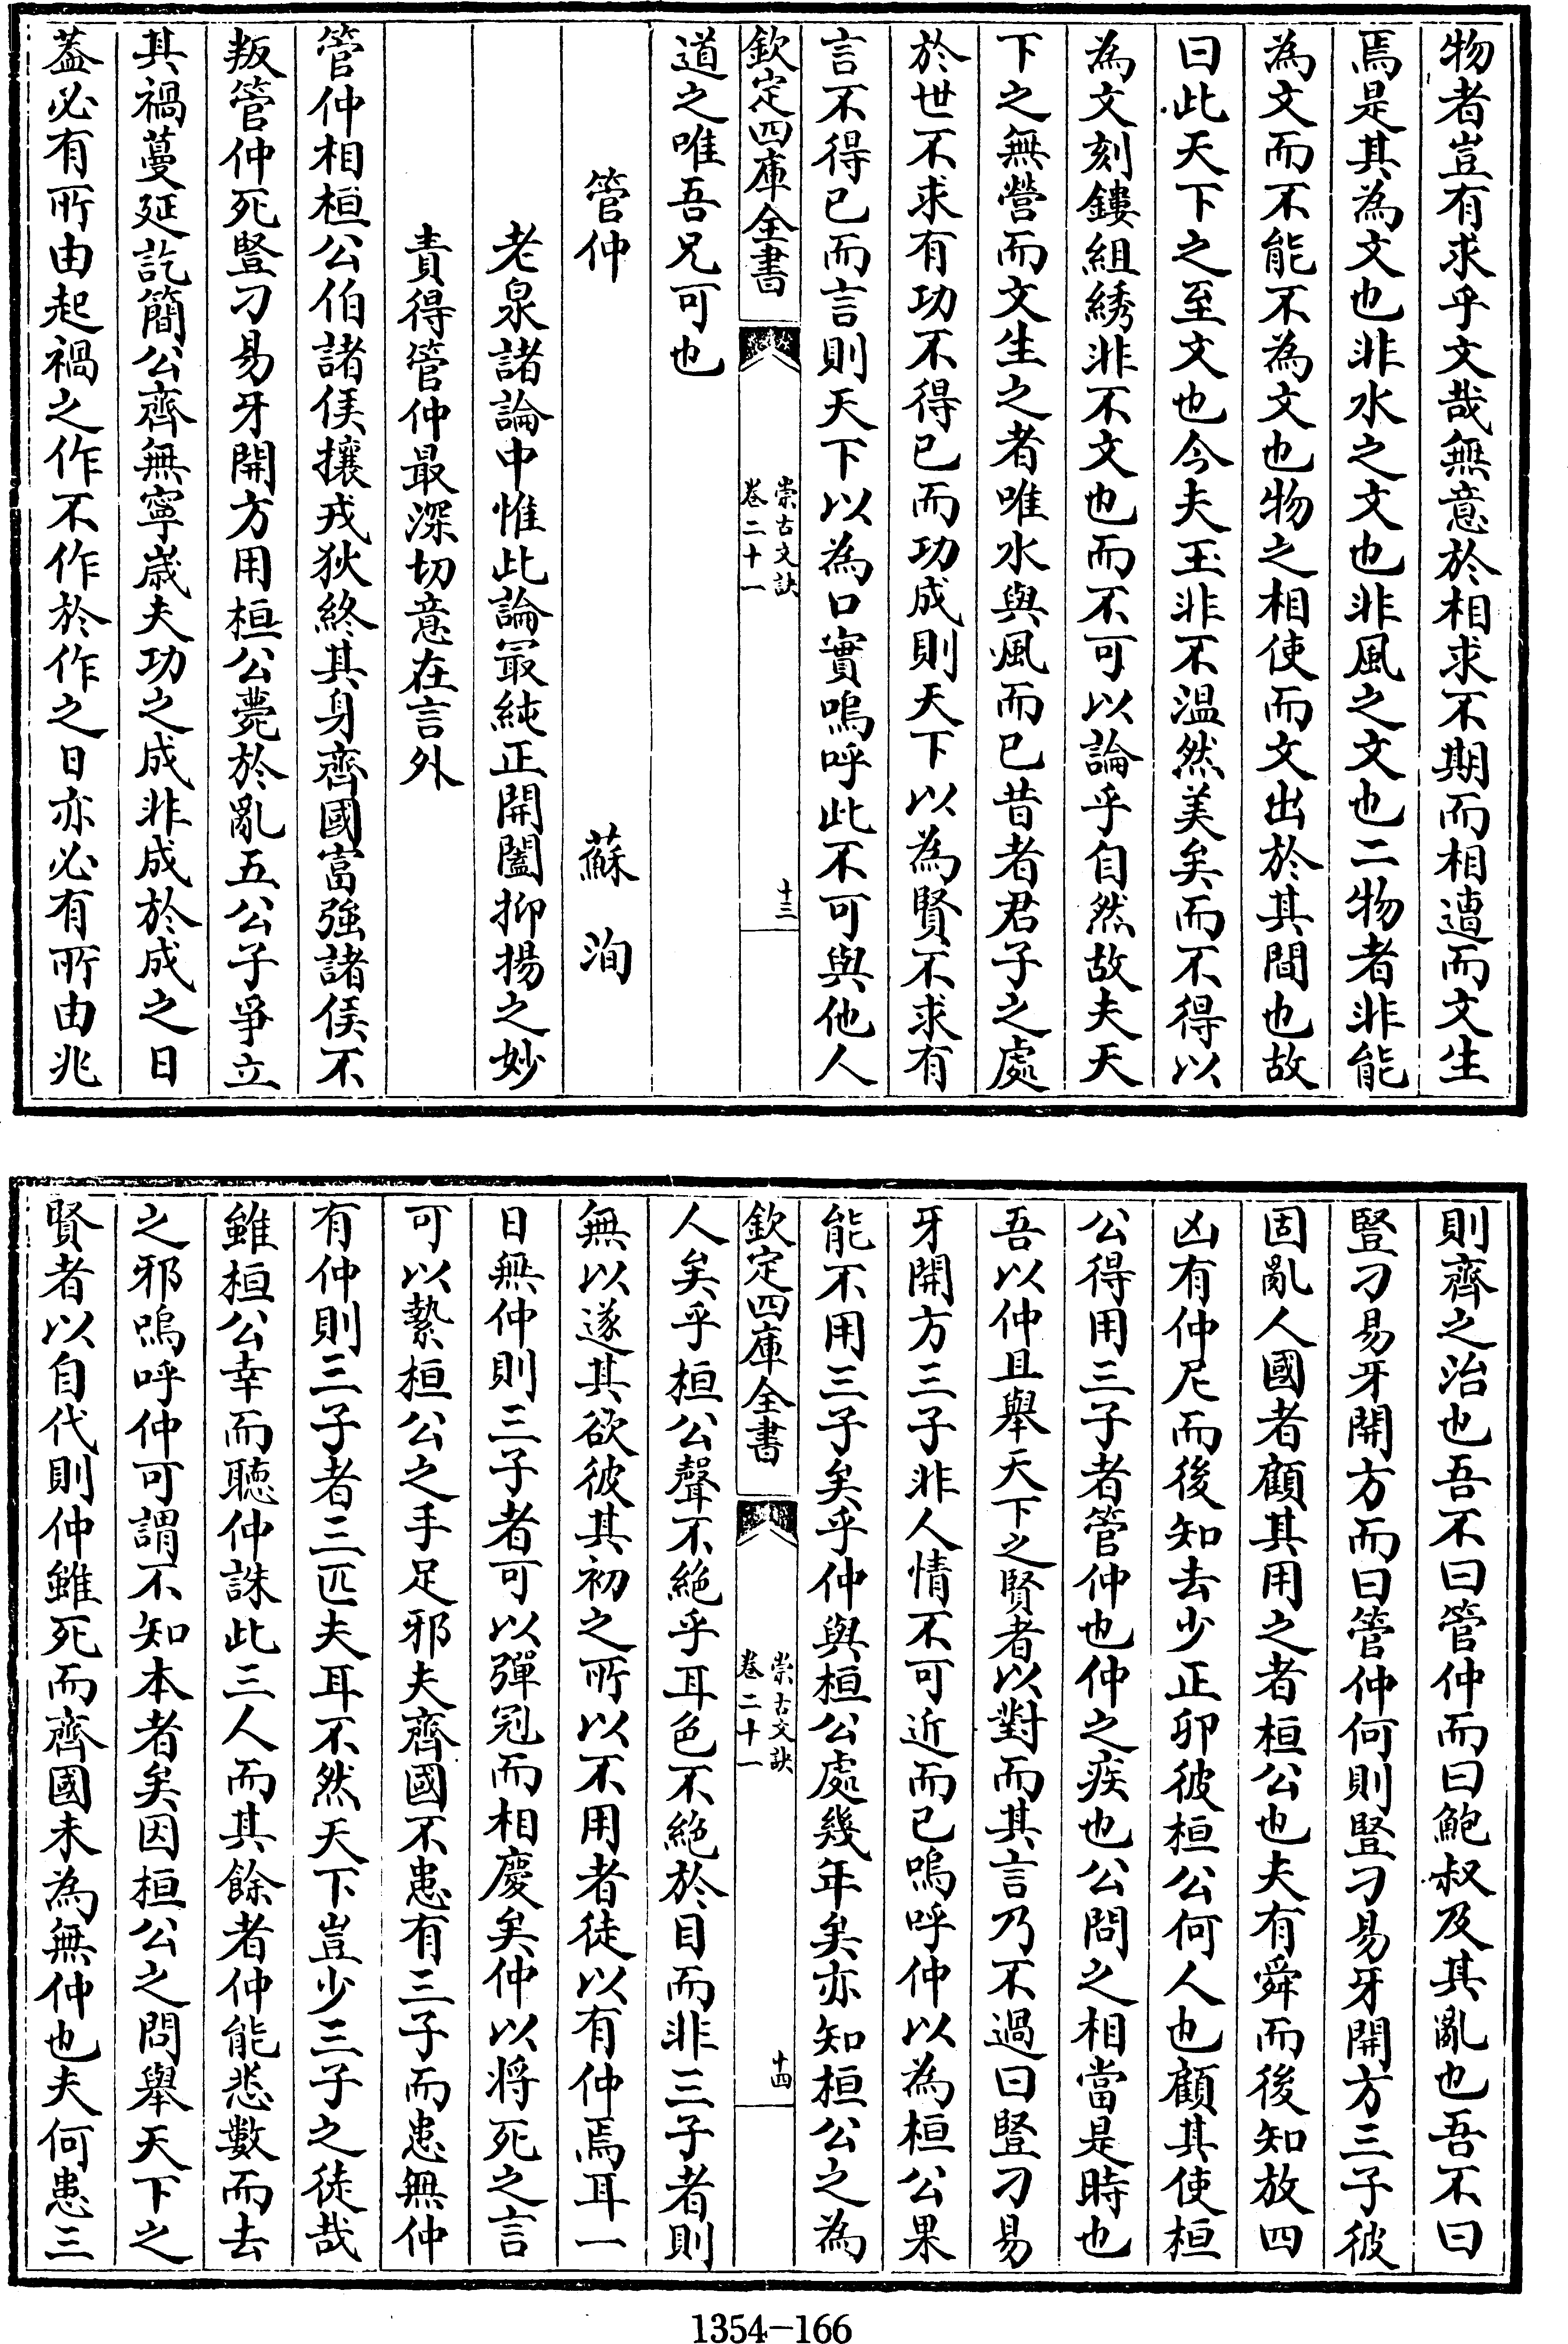 物者豈有求乎文哉無意於相求不期而相遭而文生
焉是其為文也非水之文也非風之文也二物者非能
為文而不能不為文也物之相使而文出於其間也故
曰此天下之至文也今夫玉非不温然美矣而不得以
為文刻鏤組綉非不文也而不可以論乎自然故夫天
下之無營而文生之者唯水與風而已昔者君子之處
於世不求有功不得已而功成則天下以為賢不求有
言不得已而言則天下以為口實嗚呼此不可與他人
欽定四庫全書
崇古文訣
卷二十一
十三
道之唯吾兄可也
管仲 蘇洵
老泉諸論中惟此論冣純正開闔抑揚之妙
責得管仲最深切意在言外
管仲相桓公伯諸侯攘戎狄終其身齊國富強諸侯不
叛管仲死豎刁易牙開方用桓公薨於亂五公子爭立
其禍蔓延訖簡公齊無寧嵗夫功之成非成於成之日
葢必有所由起禍之作不作於作之日亦必有所由兆
則齊之治也吾不曰管仲而曰鮑叔及其亂也吾不曰
豎刁易牙開方而曰管仲何則豎刁易牙開方三子彼
固亂人國者顧其用之者桓公也夫有舜而後知放四
凶有仲尼而後知去少正卯彼桓公何人也顧其使桓
公得用三子者管仲也仲之疾也公問之相當是時也
吾以仲且舉天下之賢者以對而其言乃不過曰豎刁易
牙開方三子非人情不可近而已嗚呼仲以為桓公果
能不用三子矣乎仲與桓公處幾年矣亦知桓公之為
欽定四庫全書
崇古文訣
卷二十一
十四
人矣乎桓公聲不絶乎耳色不絶於目而非三子者則
無以遂其欲彼其初之所以不用者徒以有仲焉耳一
日無仲則三子者可以彈冠而相慶矣仲以将死之言
可以縶桓公之手足邪夫齊國不患有三子而患無仲
有仲則三子者三匹夫耳不然天下豈少三子之徒哉
雖桓公幸而聽仲誅此三人而其餘者仲能悉數而去
之邪嗚呼仲可謂不知本者矣因桓公之問舉天下之
賢者以自代則仲雖死而齊國未為無仲也夫何患三
1354-166